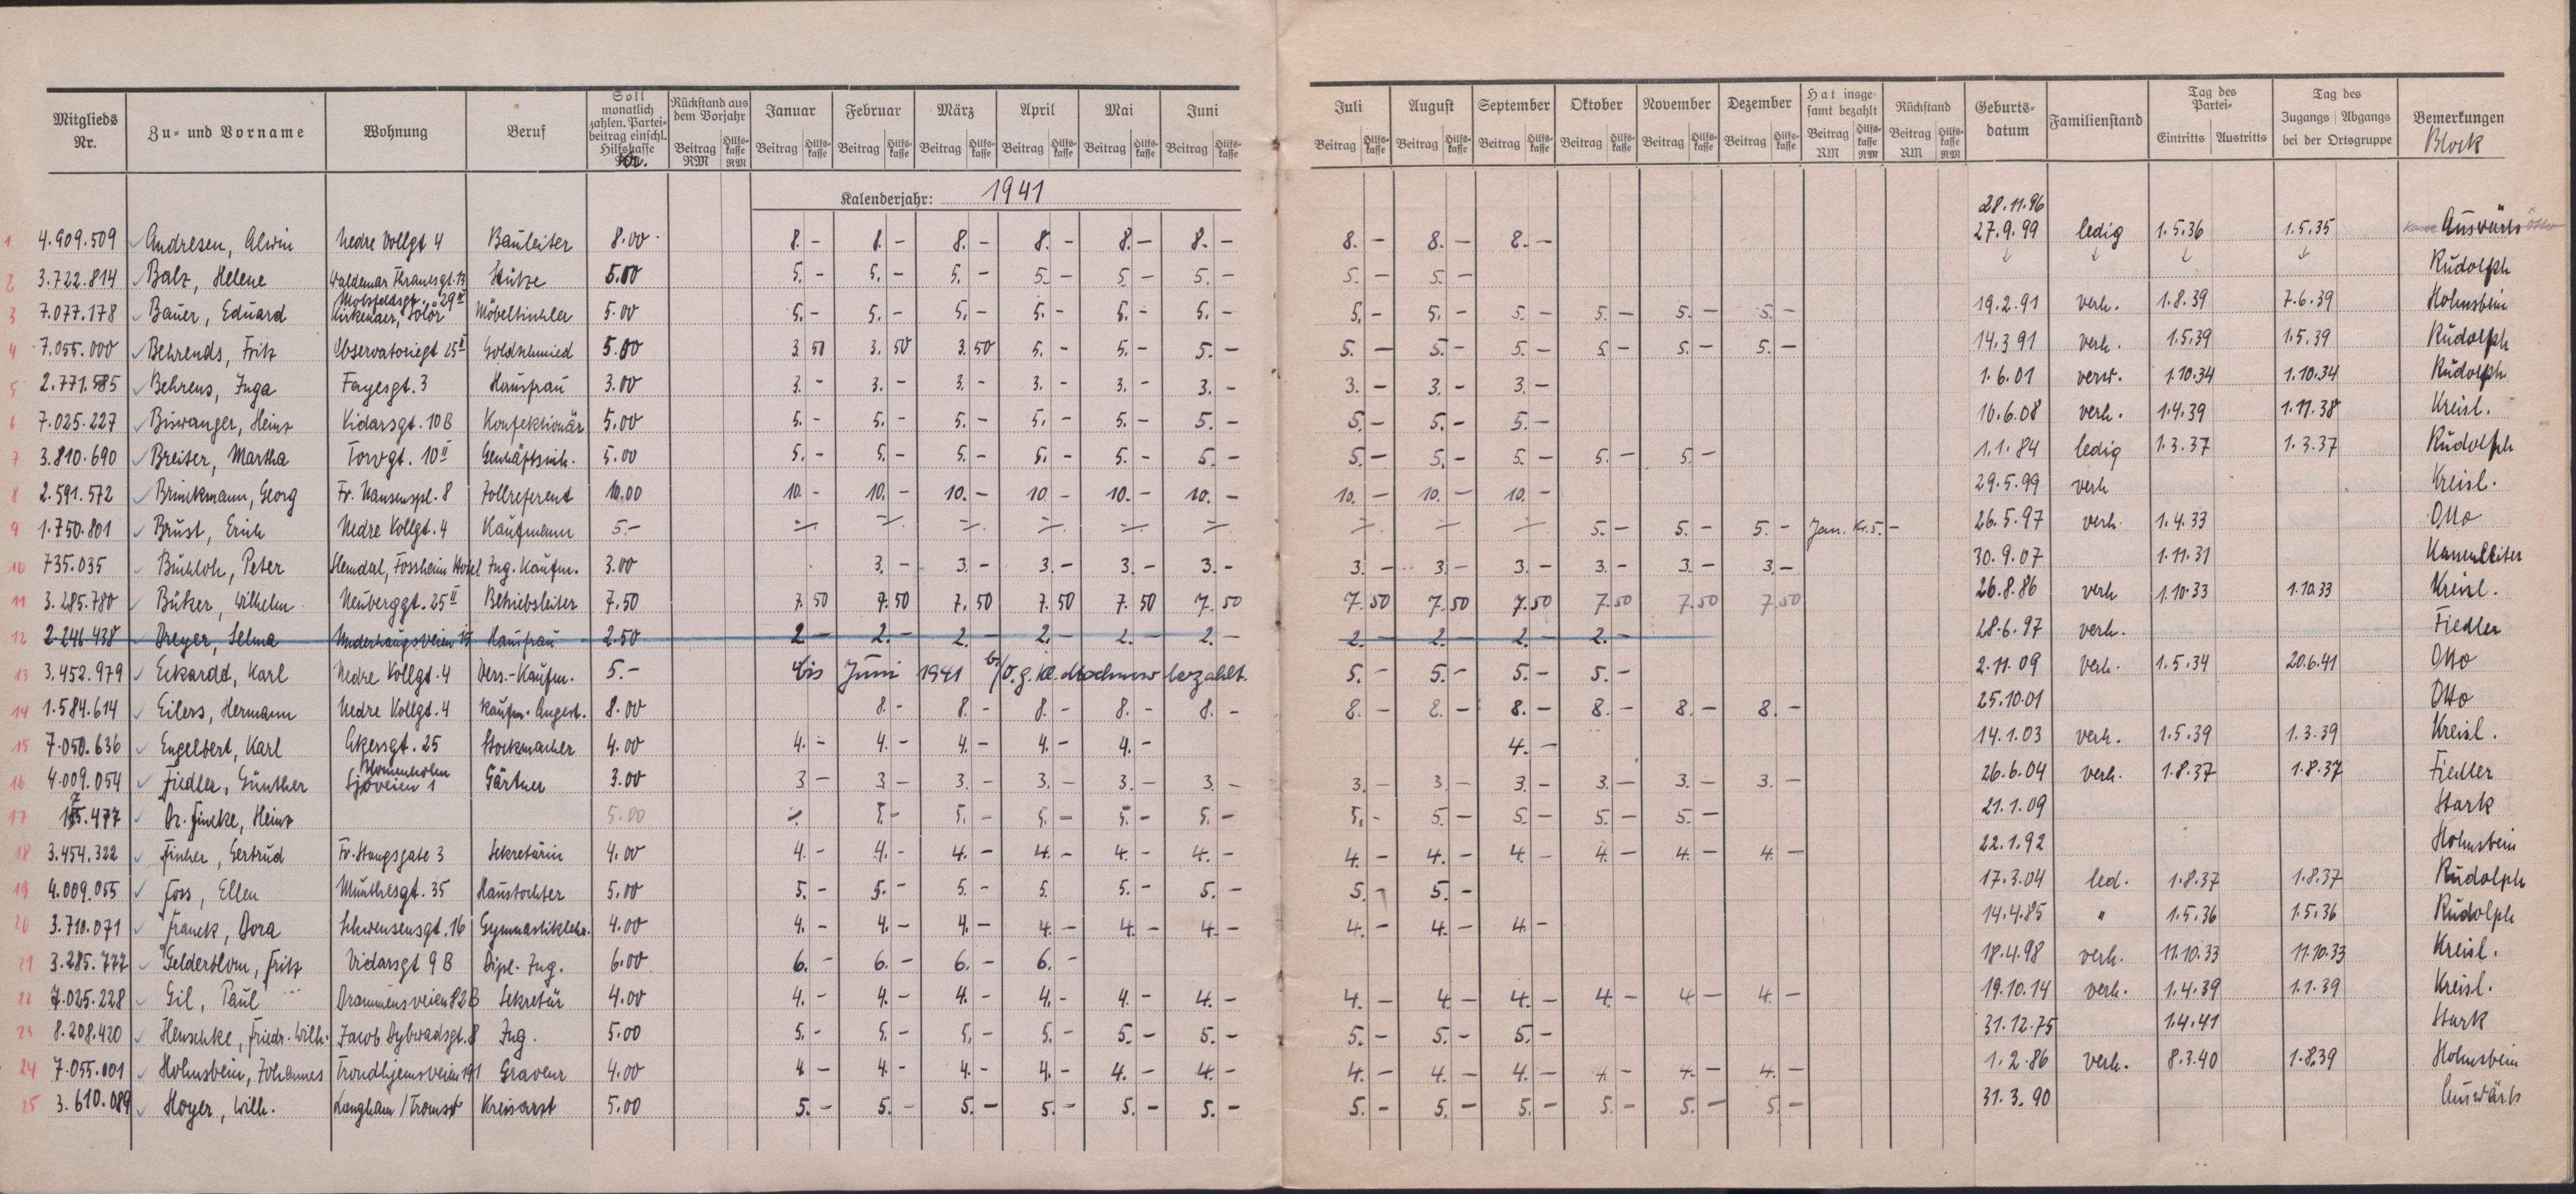 Mitglieds Nr. Zu- und Vorname Wohnung Beruf Soll monatlich zahlen. Parteibeitrag einschl. Hilfskasse Kr. Rückstand aus dem Vorjahr Beitrag RM Hilfskasse RM Januar Beitrag Hilfskasse Februar Beitrag Hilfskasse März Beitrag Hilfskasse April Beitrag Hilfskasse Mai Beitrag Hilfskasse Juni Beitrag Hilfskasse Juli Beitrag Hilfskasse August Beitrag Hilfskasse September Beitrag Hilfskasse Oktober Beitrag Hilfskasse November Beitrag Hilfskasse Dezember Beitrag Hilfskasse Hat insgesamt bezahlt Beitrag RM Hilfskasse RM Rückstand Beitrag RM Hilfskasse RM Geburtsdatum Familienstand Tag des Partei- Eintritts Austritts Tag des Zugangs Abgangs bei der Ortsgruppe Bemerkungen Block
Kalenderjahr: 1941
28.11.96
1 4.909.509 Andresen, Alwin Nedre Vollgt 4 Bauleiter 8.00 8.- 8.- 8.- 8.- 8.- 8.- 8.- 8.- 8.- 27.9.99 ledig 1.5.36 1.5.35 Auswärts
2 3.722.814 Balz, Helene Waldemar Thranesgt. 13 Stütze 5.00 5.- 5.- 5.- 5.- 5.- 5.- 5.- 5.- Rudolph
3 7.077.178 Bauer, Eduard Kirkenaer, Solör Möbeltischler 5.00 5.- 5.- 5.- 5.- 5.- 5.- 5.- 5.- 5.- 5.- 5.- 5.- 19.2.91 verh. 1.8.39 7.6.39 Holmsbein
4 7.055.000 Behrends, Fritz Observatoriegt 25 II Goldschmied 5.00 3.50 3.50 3.50 5.- 5.- 5.- 5.- 5.- 5.- 5.- 5.- 5.- 14.3.91 verh. 1.5.39 1.5.39 Rudolph
5 2.771.585 Behrens, Inga Fayesgt. 3 Hausfrau 3.00 3.- 3.- 3.- 3.- 3.- 3.- 3.- 3.- 3.- 1.6.01 verw. 1.10.34 1.10.34 Rudolph
6 7.025.227 Biswanger, Heinz Vidarsgt. 10 B Konfektionär 5.00 5.- 5.- 5.- 5.- 5.- 5.- 5.- 5.- 5.- 10.6.08 verh. 1.4.39 1.11.38 Kreisl.
7 3.810.690 Breiter, Martha Torvgt. 10 II Geschäftsinh. 5.00 5.- 5.- 5.- 5.- 5.- 5.- 5.- 5.- 5.- 5.- 5.- 1.1.84 ledig 1.3.37 1.3.37 Rudolph
8 2.591.572 Brinckmann, Georg Fr. Nansenspl. 8 Zollreferent 10.00 10.- 10.- 10.- 10.- 10.- 10.- 10.- 10.- 10.- 29.5.99 verh Kreisl.
9 1.750.801 Brust, Erich Nedre Vollgt. 4 Kaufmann 5.- 5.- 5.- 5.- Jan. Kr. 5.- 26.5.97 verh. 1.4.33 Otto
10 735.035 Buchloh, Peter Hemdal, Fossheim Hotel Ing. Kaufm. 3.00 3.- 3.- 3.- 3.- 3.- 3.- 3.- 3.- 3.- 3.- 3.- 30.9.07 1.11.31
11 3.285.780 Büker, Wilhelm Neuberggt. 25 II Betriebsleiter 7.50 7.50 7.50 7.50 7.50 7.50 7.50 7.50 7.50 7.50 7.50 7.50 7.50 26.8.86 verh 1.10.33 1.10.33 Kreisl.
12 2.246.438 Dreyer, Selma Underhaugsveien 15 Hausfrau 2.50 2.- 2.- 2.- 2.- 2.- 2.- 2.- 2.- 2.- 2.- 28.6.97 verh. Fiedler
13 3.452.979 Eckardd, Karl Nedre Vollgt. 4 Vers.-Kaufm. 5.- bis Juni 1941 bezahlt. 5.- 5.- 5.- 5.- 2.11.09 verh. 1.5.34 20.6.41 Otto
14 1.584.614 Eilers, Hermann Nedre Vollgt. 4 Kaufm. Angest. 8.00 8.- 8.- 8.- 8.- 8.- 8.- 8.- 8.- 8.- 8.- 8.- 25.10.01 Otto
15 7.050.636 Engelbert, Karl Akersgt. 25 Stockmacher 4.00 4.- 4.- 4.- 4.- 4.- 4.- 14.1.03 verh. 1.5.39 1.3.39 Kreisl.
16 4.009.054 Fiedler, Günther Blommenholm Sjöveien 1 Gärtner 3.00 3.- 3.- 3.- 3.- 3.- 3.- 3.- 3.- 3.- 3.- 3.- 3.- 26.6.04 verh. 1.8.37 1.8.37 Fiedler
17 Dr. Fincke, Heinz 5.00 5.- 5.- 5.- 5.- 5.- 5.- 5.- 5.- 5.- 5.- 21.1.09 Stark
18 3.454.322 Fischer, Gertrud Fr. Stangsgate 3 Sekretärin 4.00 4.- 4.- 4.- 4.- 4.- 4.- 4.- 4.- 4.- 4.- 4.- 4.- 22.1.92 Holmsbein
19 4.009.055 Foss, Ellen Munthesgt. 35 Haustochter 5.00 5.- 5.- 5.- 5. 5.- 5.- 5.- 5.- 17.3.04 led. 1.8.37 1.8.37 Rudolph
20 3.710.071 Franck, Dora Schwensensgt. 16 Gymnastiklehr. 4.00 4.- 4.- 4.- 4.- 4.- 4.- 4.- 4.- 4.- 14.4.85 " 1.5.36 1.5.36 Rudolph
21 3.285.777 Gelderblom, Fritz Vidarsgt 9 B Dipl. Ing. 6.00 6.- 6.- 6.- 6.- 18.4.98 verh. 11.10.33 11.10.33 Kreisl.
22 7.025.228 Gil, Paul Drammensveien 82 B Sekretär 4.00 4.- 4.- 4.- 4.- 4.- 4.- 4.- 4.- 4.- 4.- 4.- 4.- 19.10.14 verh. 1.4.39 1.1.39 Kreisl.
23 8.208.420 Henschke, Friedr. Wilh. Jacob Dybwadsgt. 8 Ing. 5.00 5.- 5.- 5.- 5.- 5.- 5.- 5.- 5.- 5.- 31.12.75 1.4.41 Stark
24 7.055.001 Holmsbein, Johannes Trondhjemsveien 191 Graveur 4.00 4.- 4.- 4.- 4.- 4.- 4.- 4.- 4.- 4.- 4.- 4.- 4.- 1.2.86 verh. 8.3.40 1.8.39 Holmsbein
25 3.610.089 Hoyer, Wilh. Langham / Tromsö Kreisarzt 5.00 5.- 5.- 5.- 5.- 5.- 5.- 5.- 5.- 5.- 5.- 5.- 5.- 31.3.90 Auswärts